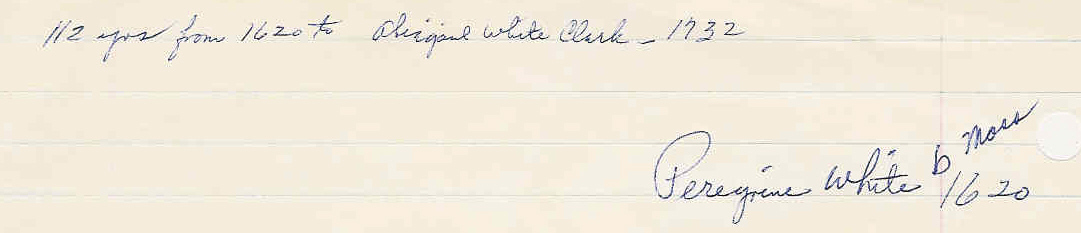 112 yrs from 1620 to Abigail White Clark - 1732
Peregrine White b Mass
1620